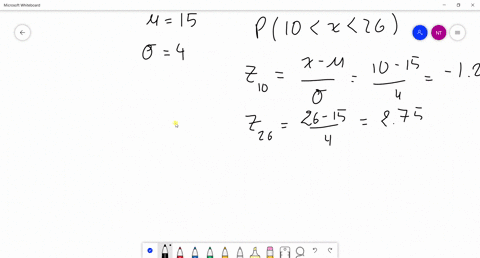 Microsoft Whiteboard
μ = 15
P(10 < x < 26)
NT
σ = 4
Z10 = x - μ / σ = 10 - 15 / 4 = -1.2
Z26 = 26 - 15 / 4 = 2.75